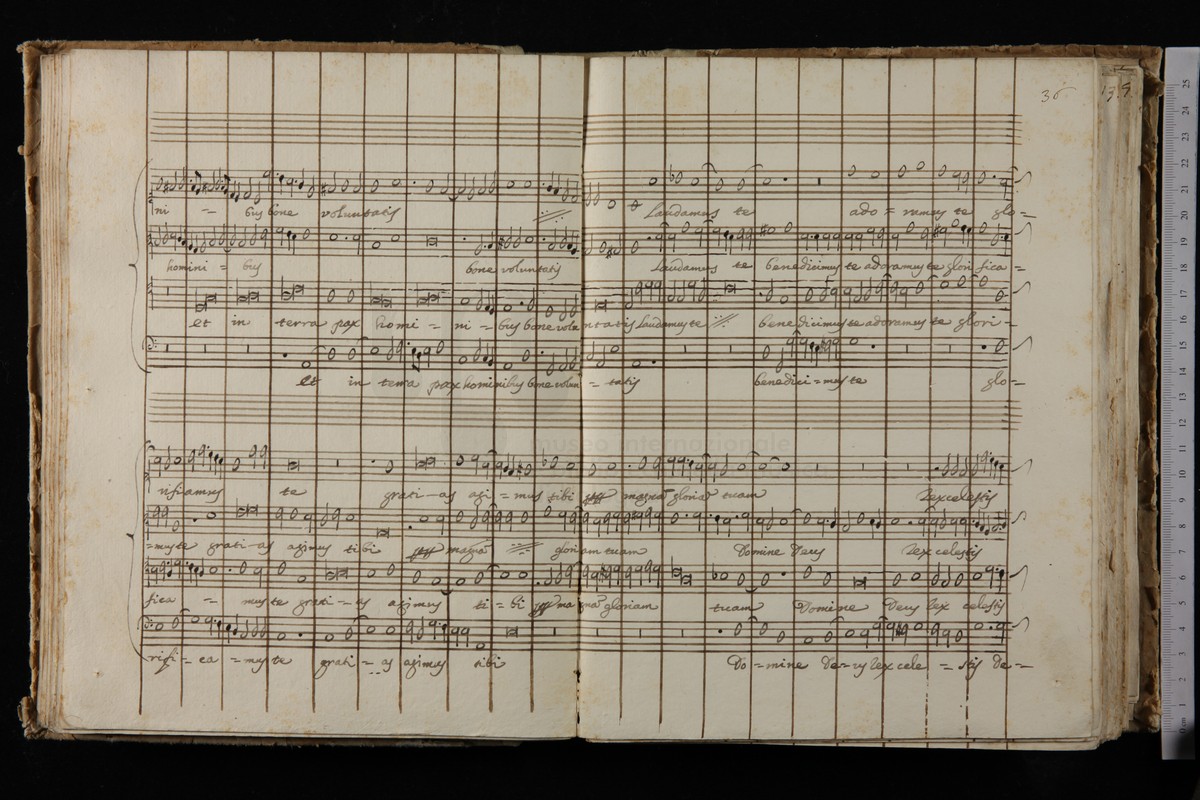 36 139
ni = bus bone voluntatis Laudamus te ado = ramus te glo =
homini = bus bone voluntatis Laudamus te benedicimus te adoramus te glori fica =
et in terra pax homi = ni = bus bone voluntatis laudamus te benedicimus te adoramus te glori =
et in terra pax hominibus bone volun = tatis benedici = mus te glo =
museo internazionale
rificamus te grati - as agi = mus tibi magnã gloriã tuam Rex celestis
= mus te grati - as agimus tibi magnã gloriam tuam Domine Deus Rex celestis
fica = mus te grati - as agimus ti = bi magnã gloriam tuam Domine Deus Rex celestis
rifi = ca = mus te grati = as agimus tibi Do = mine De = us Rex cele = stis De =